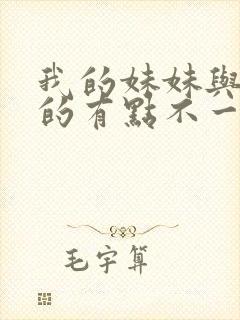 我的妹妹與
的有點不一
毛宇算